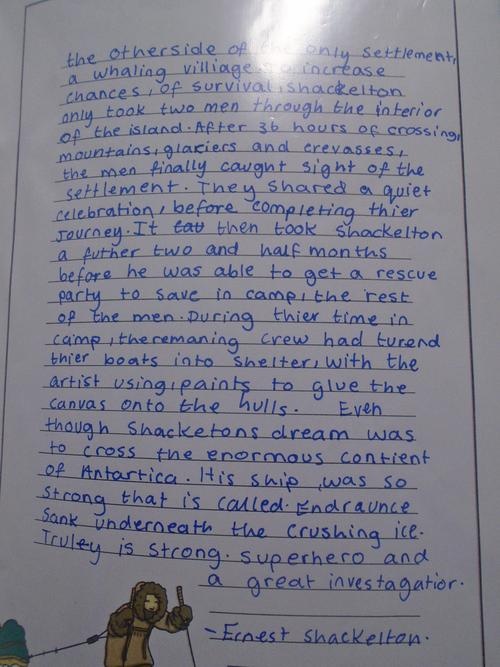 the otherside of the only settlement,
a whaling villiage so increase
chances, of survival, shackelton
only took two men through the interior
of the island. After 36 hours of crossing,
mountains, glaciers and crevasses,
the men finally caught sight of the
settlement. They shared a quiet
celebration, before completing thier
Journey. It tat then took Shackelton
a futher two and half months
before he was able to get a rescue
party to save in camp, the rest
of the men. During thier time in
camp, the remaning crew had turend
thier boats into shelter, with the
artist using, paints to glue the
canvas onto the hulls. Even
though Shacketons dream was
to cross the enormous contient
of Antartica. His ship, was so
strong that is called. Endraunce
Sank underneath the crushing ice.
Truley is strong. superhero and
a great investagatior.
- Ernest Shackelton.